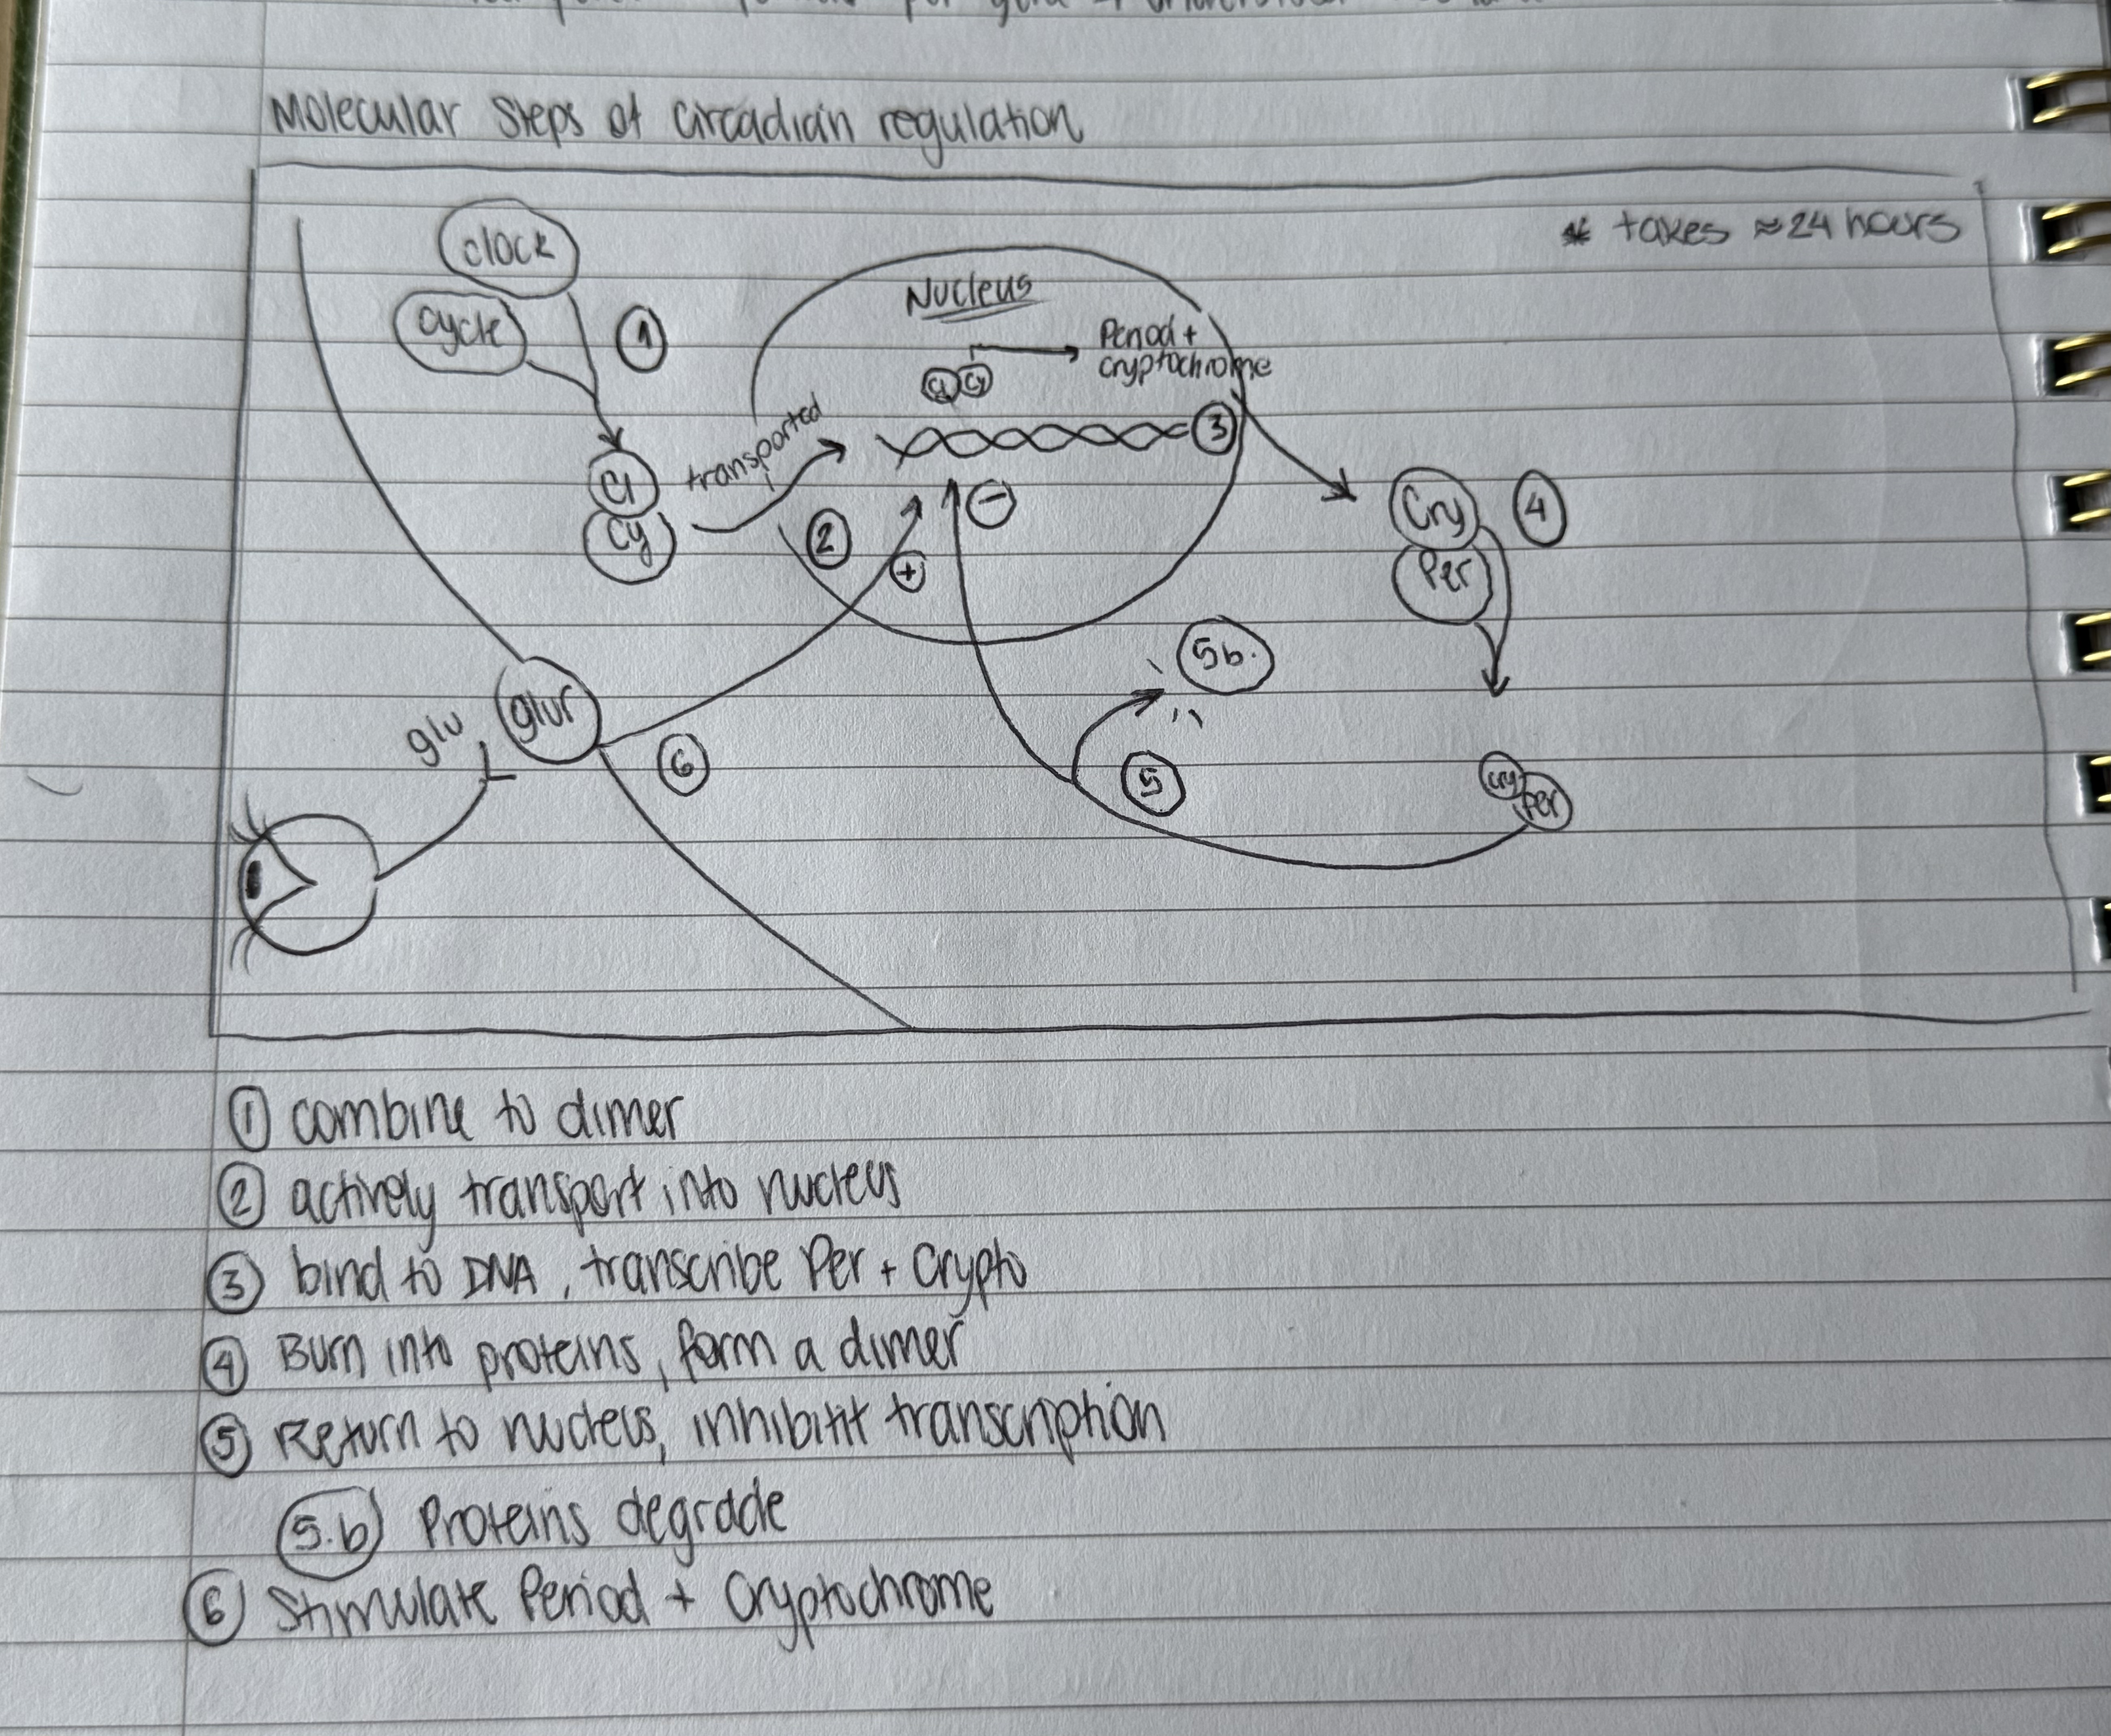 Molecular Steps of circadian regulation
* takes ≈24 hours
clock
cycle
1
Nucleus
Period +
cryptochrome
Cl Cy
transported
3
Cl
Cy
2
+
−
Cry
Per
4
5b.
glu
glur
6
5
cry
Per
1 combine to dimer
2 actively transport into nucleus
3 bind to DNA, transcribe Per + Crypto
4 Burn into proteins, form a dimer
5 Return to nucleus, inhibitit transcription
5.b Proteins degrade
6 Stimulate Period + Cryptochrome